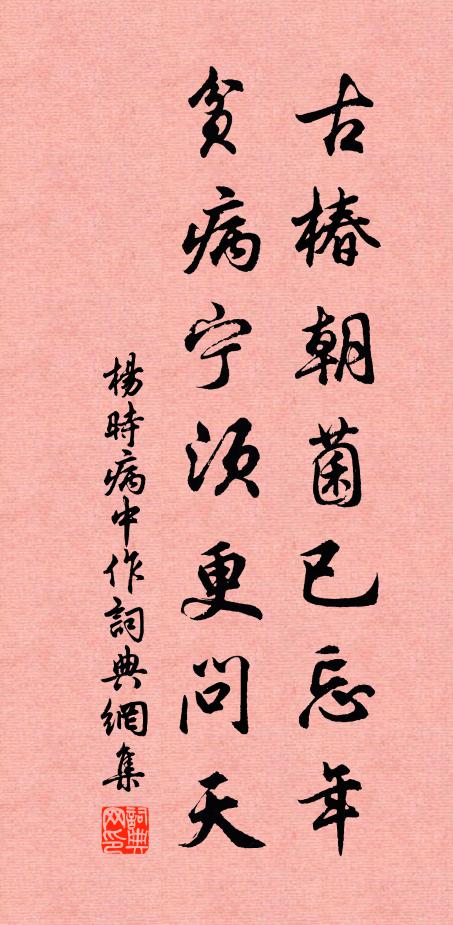 古椿朝菌已忘年
贫病宁须更问天
楊時病中作詞典網集
詞典网印